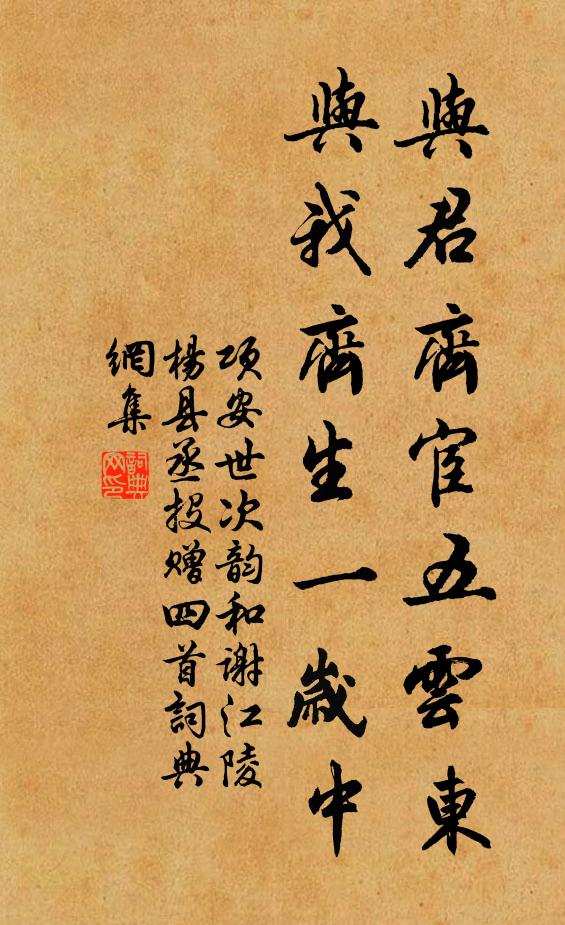 與君齊宦五雲東
與我齊生一歲中
項安世次韵和謝江陵
楊县丞投赠四首詞典
網集
詞典
网印